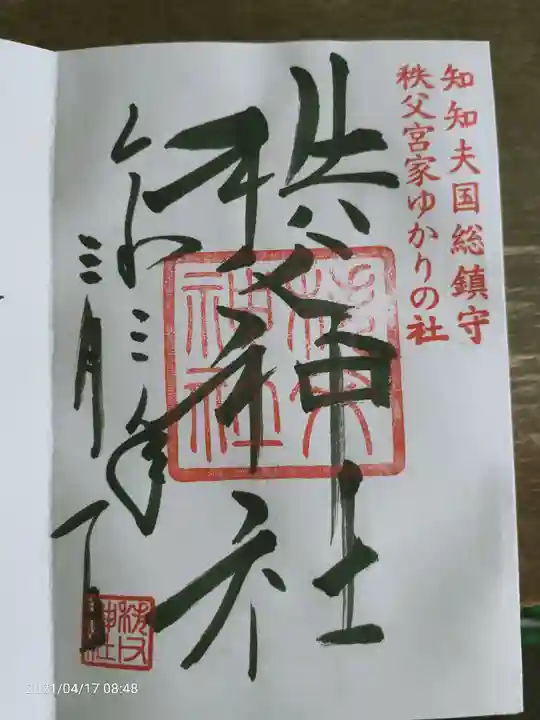 知知夫国総鎮守
秩父宮家ゆかりの社
秩父神社
秩父神社
令和三年
三月
秩父神社
2021/04/17 08:48